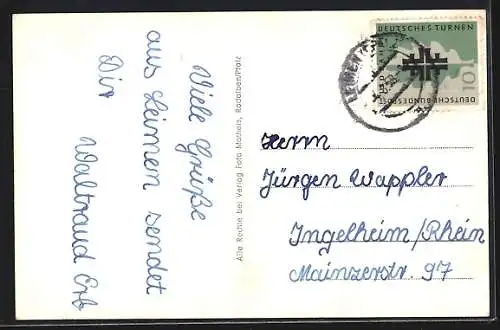 Viele Grüße
aus Leimen sendet
Dir
Waltraud Erb
Alle Rechte bei Verlag Foto Matheis, Rodalben/Pfalz
DEUTSCHES TURNEN
10
DEUTSCHE BUNDESPOST
LEIMEN
Herrn
Jürgen Wappler
Ingelheim/Rhein
Mainzerstr. 97